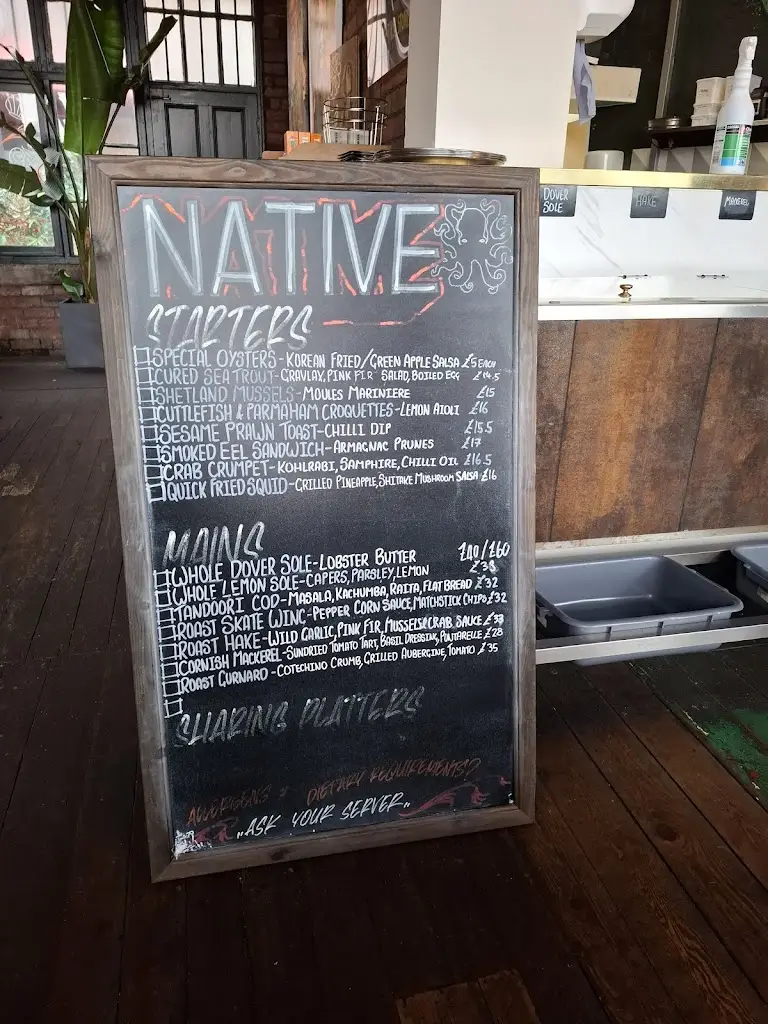 NATIVE
STARTERS
SPECIAL OYSTERS - KOREAN FRIED/GREEN APPLE SALSA £5 EACH
CURED SEA TROUT - GRAVLAX, PINK FIR SALAD, BOILED EGG £14.5
SHETLAND MUSSELS - MOULES MARINIERE £15
CUTTLEFISH & PARMAHAM CROQUETTES - LEMON AIOLI £16
SESAME PRAWN TOAST - CHILLI DIP £15.5
SMOKED EEL SANDWICH - ARMAGNAC PRUNES £17
CRAB CRUMPET - KOHLRABI, SAMPHIRE, CHILLI OIL £16.5
QUICK FRIED SQUID - GRILLED PINEAPPLE, SHITAKE MUSHROOM SALSA £16
MAINS
WHOLE DOVER SOLE - LOBSTER BUTTER £40/£60
WHOLE LEMON SOLE - CAPERS, PARSLEY, LEMON £38
TANDOORI COD - MASALA, KACHUMBA, RAITA, FLAT BREAD £32
ROAST SKATE WING - PEPPER CORN SAUCE, MATCHSTICK CHIPS £32
ROAST HAKE - WILD GARLIC, PINK FIR, MUSSELS & CRAB SAUCE £33
CORNISH MACKEREL - SUNDRIED TOMATO TART, BASIL DRESSING, PUNTARELLE £28
ROAST GURNARD - COTECHINO CRUMB, GRILLED AUBERGINE, TOMATO £35
SHARING PLATTERS
ALLERGENS & DIETARY REQUIREMENTS?
..ASK YOUR SERVER..
DOVER
SOLE
HAKE
MACKEREL